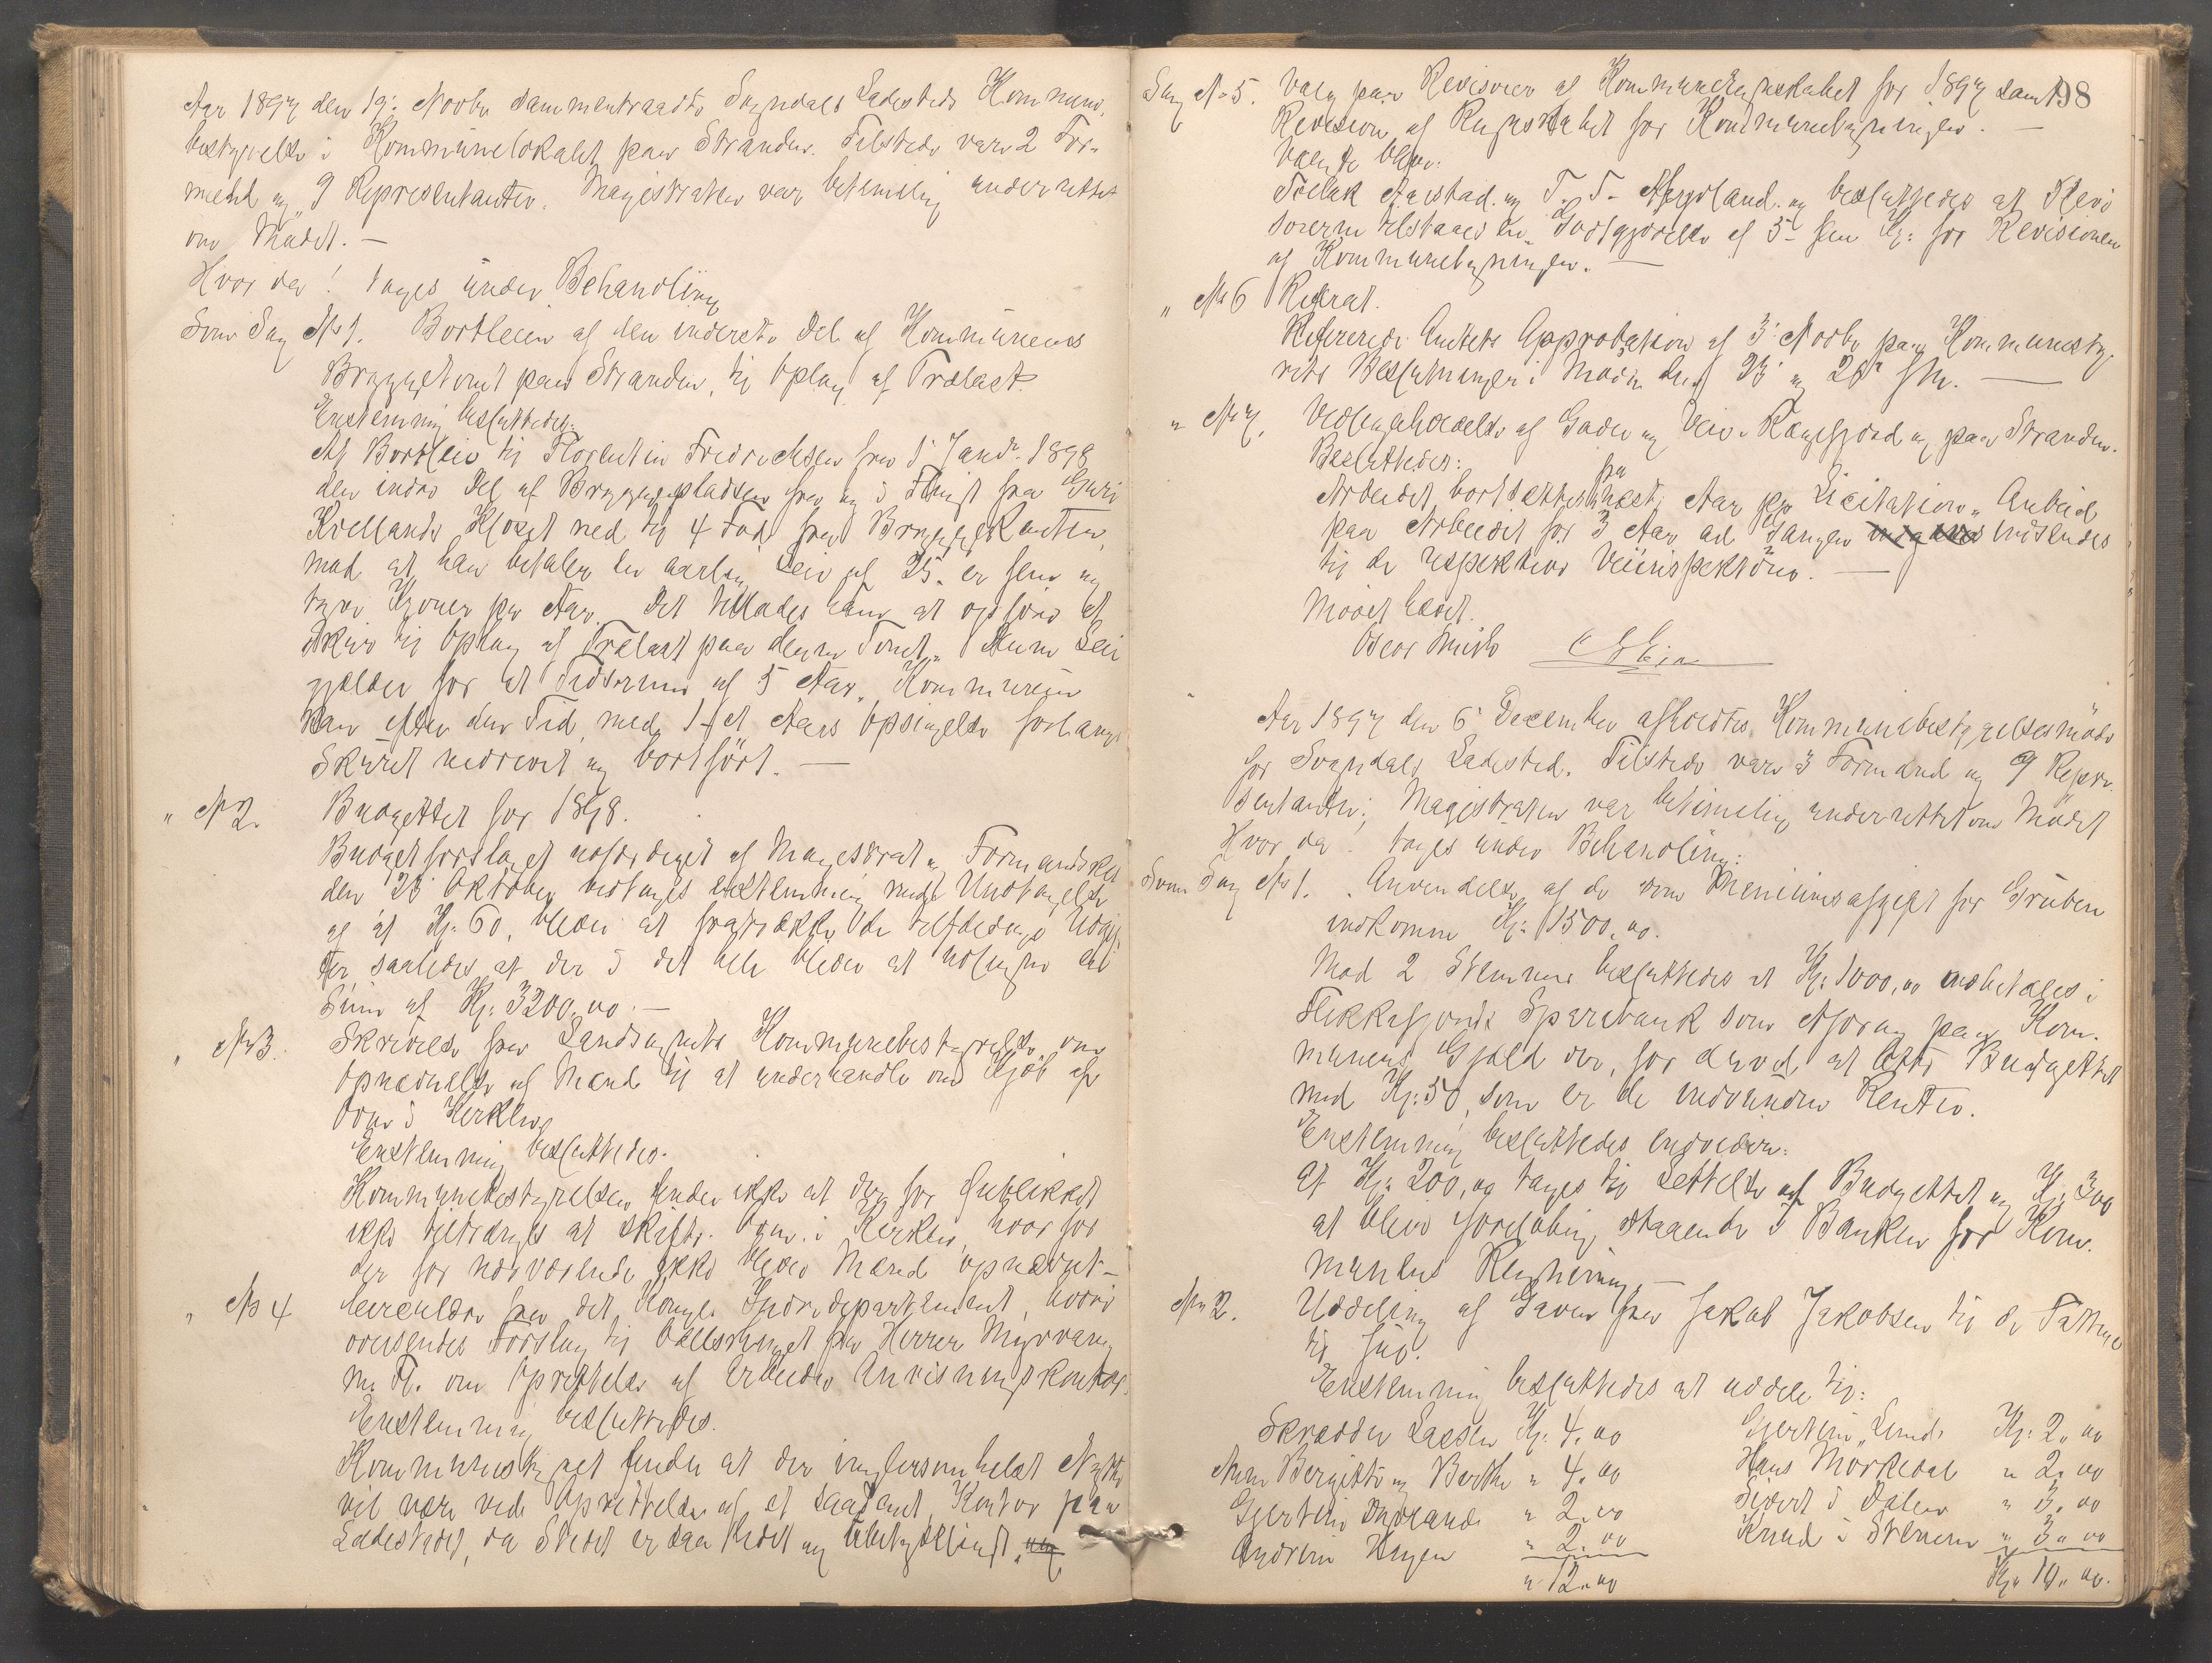 Aar 1897 den 19: Novbr sammentraadte Sogndals Ladesteds Kommune
bestyrelse i Kommunelokalet paa Stranden. Tilstede vare 2 For-
mænd og 9 Repræsentanter. Magistraten var betimelig underrettet
om Mødet. —
Hvor da! toges under Behandling
Som Sag No 1. Bortleien af den inderste Del af Kommunens
Bryggetomt paa Stranden, til Oplag af Trælast.
Enstemmig besluttedes:
At Bortleie til Florentin Fredriksen fra 1 Jandr. 1898
den indre Del af Bryggepladsen fra og i Flugt fra
Kiellands Kloset ned til 4 Fod fra Bryggekanten,
mod at han betaler en aarlig Leie af 25. er fem og
tyve Kroner pr Aar. Det tillades ham at opføre et
Skur til Oplag af Trælast paa denne Tomt. Denne Leie
gjælder for et Tidsrum af 5 Aar. Kommunen
kan efter den Tid, med 1 - et Aars Opsigelse forlange
Skuret nedrevet og bortført. —
" No 2. Budgettet for 1898.
Budgetforslaget udfærdiget af Magistrat og Formandskab
den 25 Oktober vedtoges enstemmig med Undtagelse
af at Kr. 60, bliver at fratrække de Udgif-
ter, saaledes at der i det hele bliver at udligne en
Sum af Kr. 3200,00. —
" No 3. Skrivelse fra Landsognets Kommunebestyrelse om
Opnævnelse af Mænd til at underhandle om Kjøb af
Ovn i Kirken.
Enstemmig besluttedes.
Kommunebestyrelsen finder ikke at der for Øieblikket
ikke tiltrænges at skifte Ovn i Kirken, hvorfor
der for nærværende ikke bliver Mænd opnævnt —
" No 4 Cirkulære fra det Kongl. Indredepartement, hvori
oversendes Forslag til fra Herrer Myrvang
m. Fl. om Oprettelse af Arbeids Anvisningskontor.
Enstemmig besluttedes.
Kommunestyret finder at der ingensomhelst Nytte
vil være ved Oprettelse af et saadant Kontor paa
Ladestedet, da Stedet er saa lidet og ubetydeligt.
Sag No 5. Valg paa Revisorer af Kommuneregnskabet for 1897 samt 198
Revision af Regnskabet for Kommunebygningen. —
Valgte blev:
Tollak Aarstad og T. T. og besluttedes at Revi
sorerne tilstaaes en Godtgjørelse af 5 - fem Kr: for Revisionen
af Kommunebygningen. —
" No 6 Referat.
Refereredes Amtets Approbation af 3' Novbr paa Kommunesty-
rets Beslutninger i Møde den 23' og 28' f.M. —
" No 7. Vedligeholdelse af Gader og Veie i Rægefjord og paa Stranden.
Besluttedes:
Arbeidet bortsættes fra næste Aar pr Licitation. Anbud
paa Arbeidet for 3 Aar ad Gangen indsendes
til de respektive Veiinspektører. —
Mødet hævet.
Oscar Munk
Aar 1897 den 6' December afholdtes Kommunebestyrelsesmøde
for Sogndals Ladested. Tilstede vare 3 Formænd og 9 Repræ-
sentanter; Magistraten var betimelig underrettet om Mødet
Hvor da! toges under Behandling:
Som Sag No 1. Anvendelse af de som Minimumsafgift for Gruben
indkomne Kr: 1500.00.
Mod 2 Stemmer besluttedes at Kr: 1000,00 indbetales i
Flekkefjords Sparebank som Afdrag paa Kom-
munens Gjæld der, for derved at lette Budgettet
med Kr: 50, som er de indvundne Renter.
Enstemmig besluttedes endvidere:
at Kr. 200,00 tages til Lettelse af Budgettet og Kr. 300
at blive foreløbig staaende i Banken for Kom-
munens Regning. —
No 2. Uddeling af Gaven fra Jakob Jakobsen til de Fattige
til Jul.
Enstemmig besluttedes at uddele til:
Skrædder Larsen Kr. 4.00 Gjertine Lund Kr. 2.00
Anne Bergitte og Berthe " 4.00 Hans Mørkedal " 2.00
Gjertine " 2.00 Sivert i Dalen " 3.00
Andrine Hagen " 2.00 Knud i Stenene " 3.00
" 12.00 Kr. 10.00.